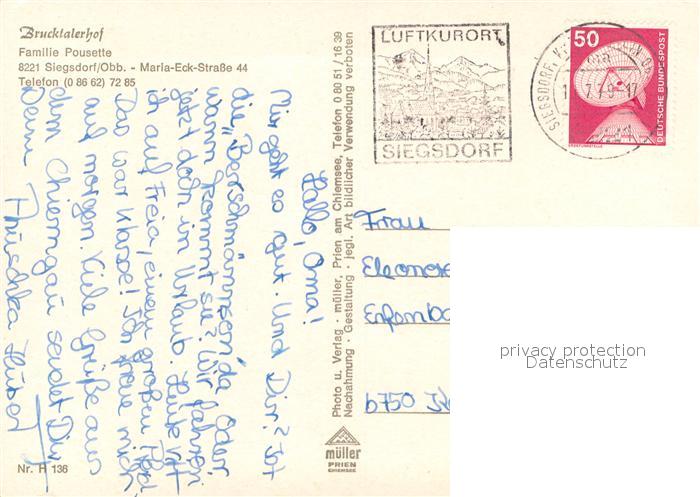 Brucktalerhof
Familie Pousette
8221 Siegsdorf/Obb. - Maria-Eck-Straße 44
Telefon (0 86 62) 72 85
Hallo, Oma!
Mir geht es gut. Und Dir? Ist
die "Borschmännzenda oder
wann kommt sie? Wir fahren
jetzt doch in Urlaub. Heute ritt
ich auf Freia, einem großen Pferd.
Das war klasse! Ich freue mich
auf morgen. Viele Grüße aus
dem Chiemgau sendet Dir
Deine
Photo u. Verlag · müller, Prien am Chiemsee, Telefon 0 80 51 / 16 39
Nachahmung · Gestaltung · jegl. Art bildlicher Verwendung verboten
müller
PRIEN
CHIEMSEE
Nr. H 136
LUFTKURORT
SIEGSDORF
SIEGSDORF
50
DEUTSCHE BUNDESPOST
ERDEFUNKSTELLE
Frau
Eleonore
6750
privacy protection
Datenschutz